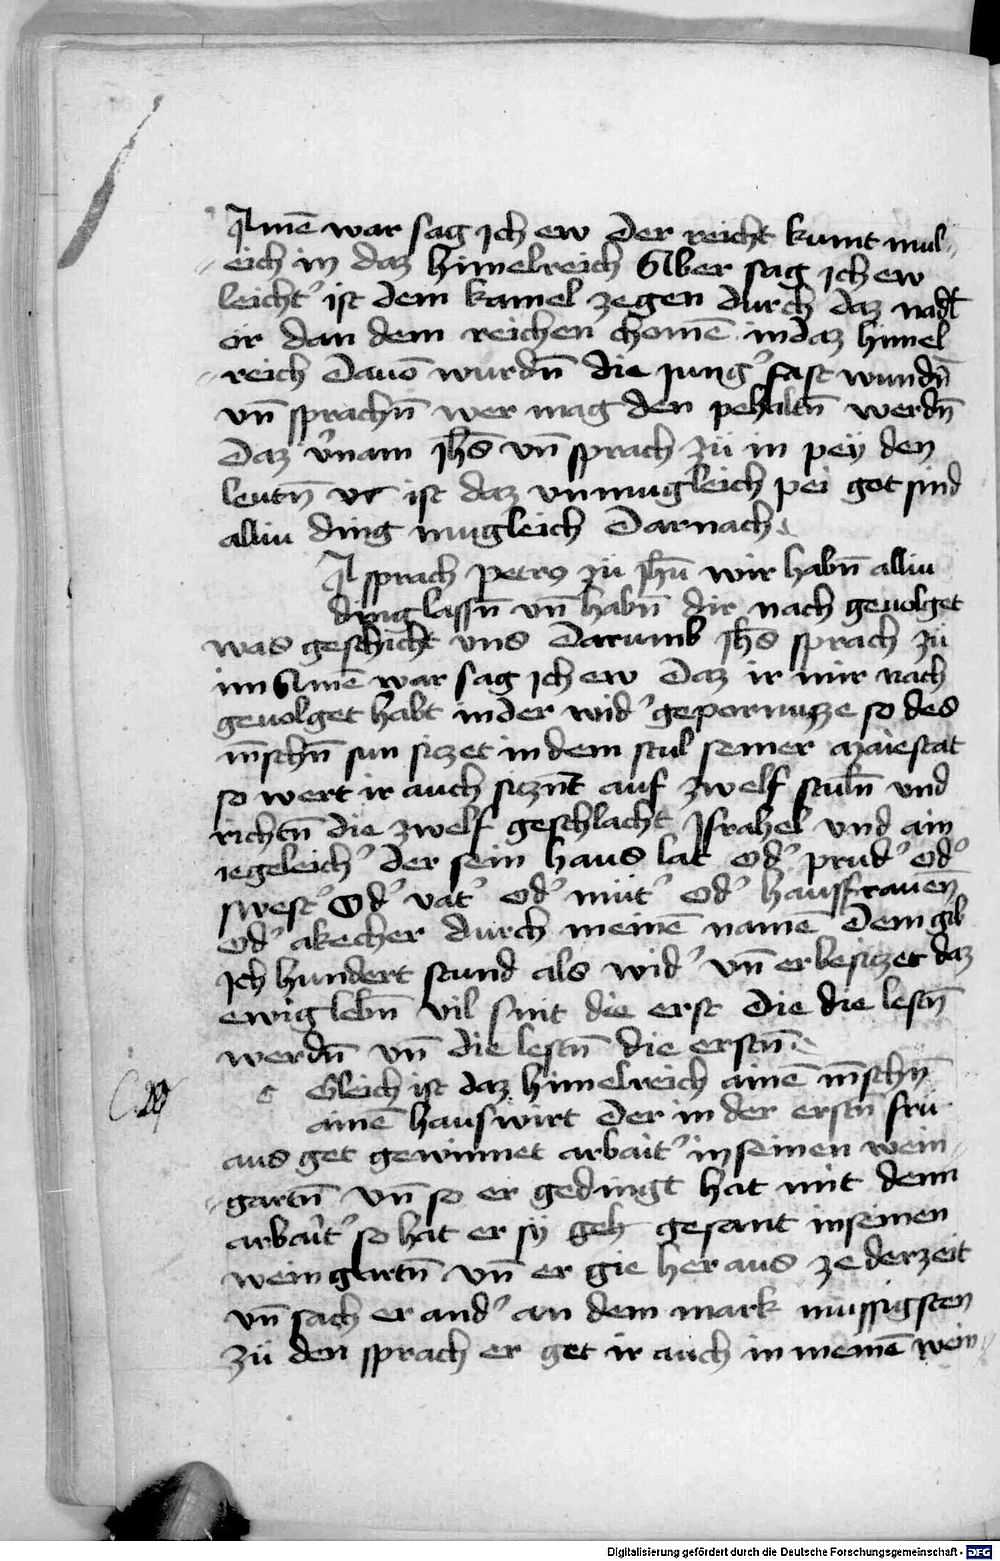 Amē war sag ich ew Der reicht kumt mul-
eich in daz himelreich Aber sag ich ew
leicht' ist dem kamel zegen durch daz nadl
ör dan dem reichen chomē in daz himel
reich Dauō wurdn̄ die Jung' fast wundn̄
vn̄ sprachn̄ wer mag den pehaltn̄ werdn̄
Daz v'nam Jh̄s vn̄ sprach zü in pey den
leutn̄ ist daz vnmugleich pei got sind
alliu ding mugleich Darnach
sprach petro zü Jhū wir habn̄ alliu
ding lassn̄ vn̄ habn̄ dir nach geuolget
was geschicht vns Darumb Jh̄s sprach zü
im Amē war sag ich ew Daz ir mir nach
geuolget habt in der wid'gepornuzze so des
m̄schn̄ sun siczet in dem stul seiner Maiestat
so wert ir auch siczn̄t auf zwelf stuln̄ vnd
richtn̄ die zwelf geschlacht Jsrahel vnd ain
iegeleich' der sein haus lat od' prud' od'
swest' Od' vat' od' müt' od' hausfrauen̄
od' akecher durch meinē namē Dem gib
Ich hundert stund als wid' vn̄ er besiczet daz
ewig lebn̄ vil sint die erst Die die lestn̄
werdn̄ vn̄ die lestn̄ die erstn̄
c Gleich ist daz himelreich ainē m̄schn̄
20
ainē hauswirt Der in der erstn̄ frü
aus get gewinnet arbait' in seinen wein-
gartn̄ vn̄ so er gedingt hat mit denn
arbait' so hat er sy geh gesant in seinen
weingartn̄ vn̄ er gie her aus ze der zeit
vn̄ sach er and' an dem mark mussigsten
zü den sprach er get ir auch in meinē wein-
Digitalisierung gefördert durch die Deutsche Forschungsgemeinschaft - DFG